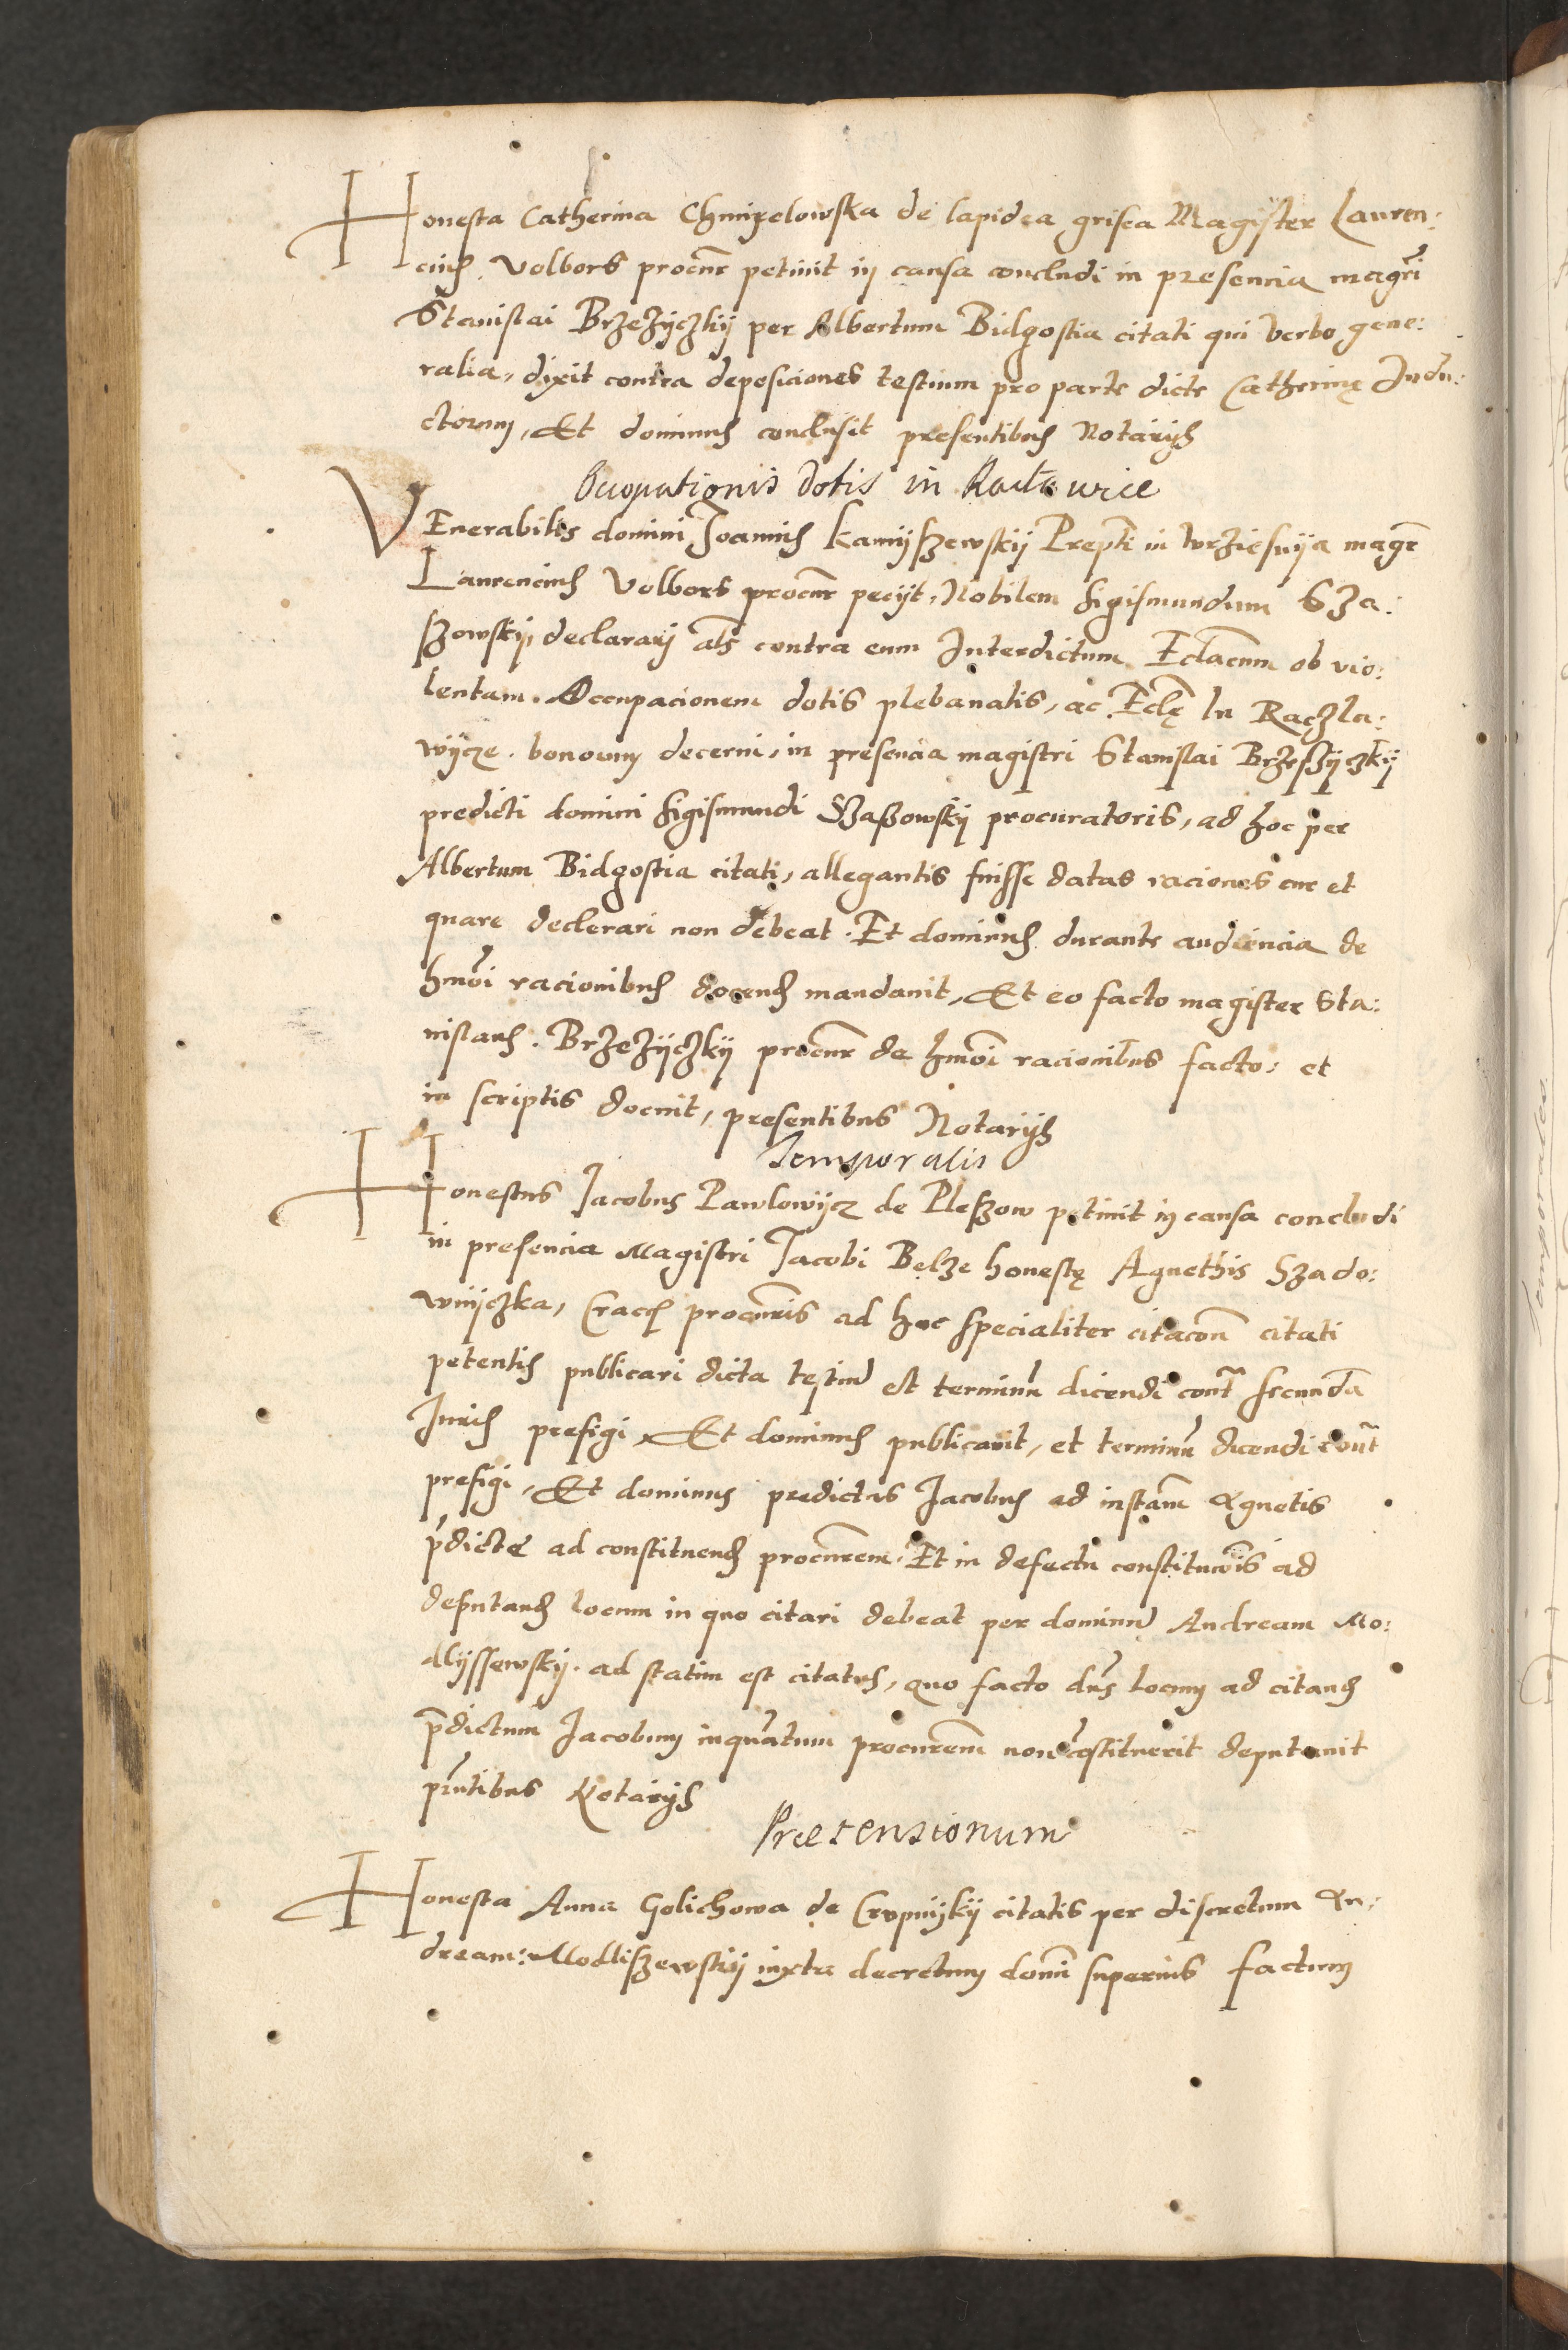 Honesta Catherina Chmyelowska de lapidea grisea Magister Lauren:
cius. Volbors procur petivit in causa concludi in presencia magri
Stanislai Brzezyczkij per Albertum Bidgostia citati qui verbo gene:
ralia, dixit contra deposiciones testium pro parte dicte Catherinę Indu:
ctorum, Et dominus conclusit presentibus Notarijs
Occupationis Dotis in Racławice
VEnerabilis domini Joannis Kamijszewskij Prepti in Wrziesnija magr
Laurencius Volbors procur pecijt, Nobilem Sigismundum Sza:
szowskij, declarari als contra eum Interdictum Eclacum ob vio:
lentam. Occupacionem dotis plebanatis, ac Eclę In Raczla:
wijcze. bonorum decerni, in presencia magistri Stanislai Brzeszijczkij
predicti domini Sigismundi Szaszowskij procuratoris, ad hoc per
Albertum Bidgostia citati, allegantis fuisse datas raciones cur et
quare declerari non debeat. Et dominus durante audiencia de
hmoi racionibus docend mandavit, Et eo facto magister Sta:
nislaus. Brzezijczkij procur de hmoi racionibus facto: et
in scriptis docuit, presentibus Notarijs
Temporalis
Honestus Jacobus Pawlowijcz de Pleszow petivit in causa concludi
in presencia Magistri Jacobi Belze honestę Agnethis Szado:
wnijczka, Crac procuris ad hoc specialiter citacon citati
petentis publicari dicta testium et terminum dicendi cont secunda
Juris prefigi, Et dominus publicavit, et terminum dicendi cont
prefigi, Et dominus predictus Jacobus ad instam Agnetis
pdicte ad constituend procurem, Et in defectu constitucois ad
deputand locum in quo citari debeat per dominum Andream Mo:
dlijssewskij. ad statim est citatus, quo facto dns locum ad citand
pdictum Jacobum inquantum procurem non costituerit deputavit
pntibus Notarijs
Praetensionum
Honesta Anna Golichowa de Crupnijkij citatis per discretum An:
dream: Modliszewskij iuxta decretum domi superius factum